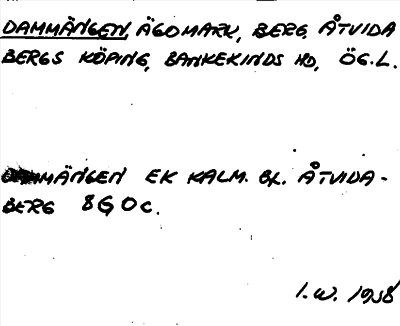 DAMMÄNGEN, ÄGOMARK, BERG, ÅTVIDA
BERGS KÖPING, BANKEKINDS HD, ÖG.L.
DAMMÄNGEN EK KALM. BL. ÅTVIDA-
BERG 8G 0c.
I.W. 1958